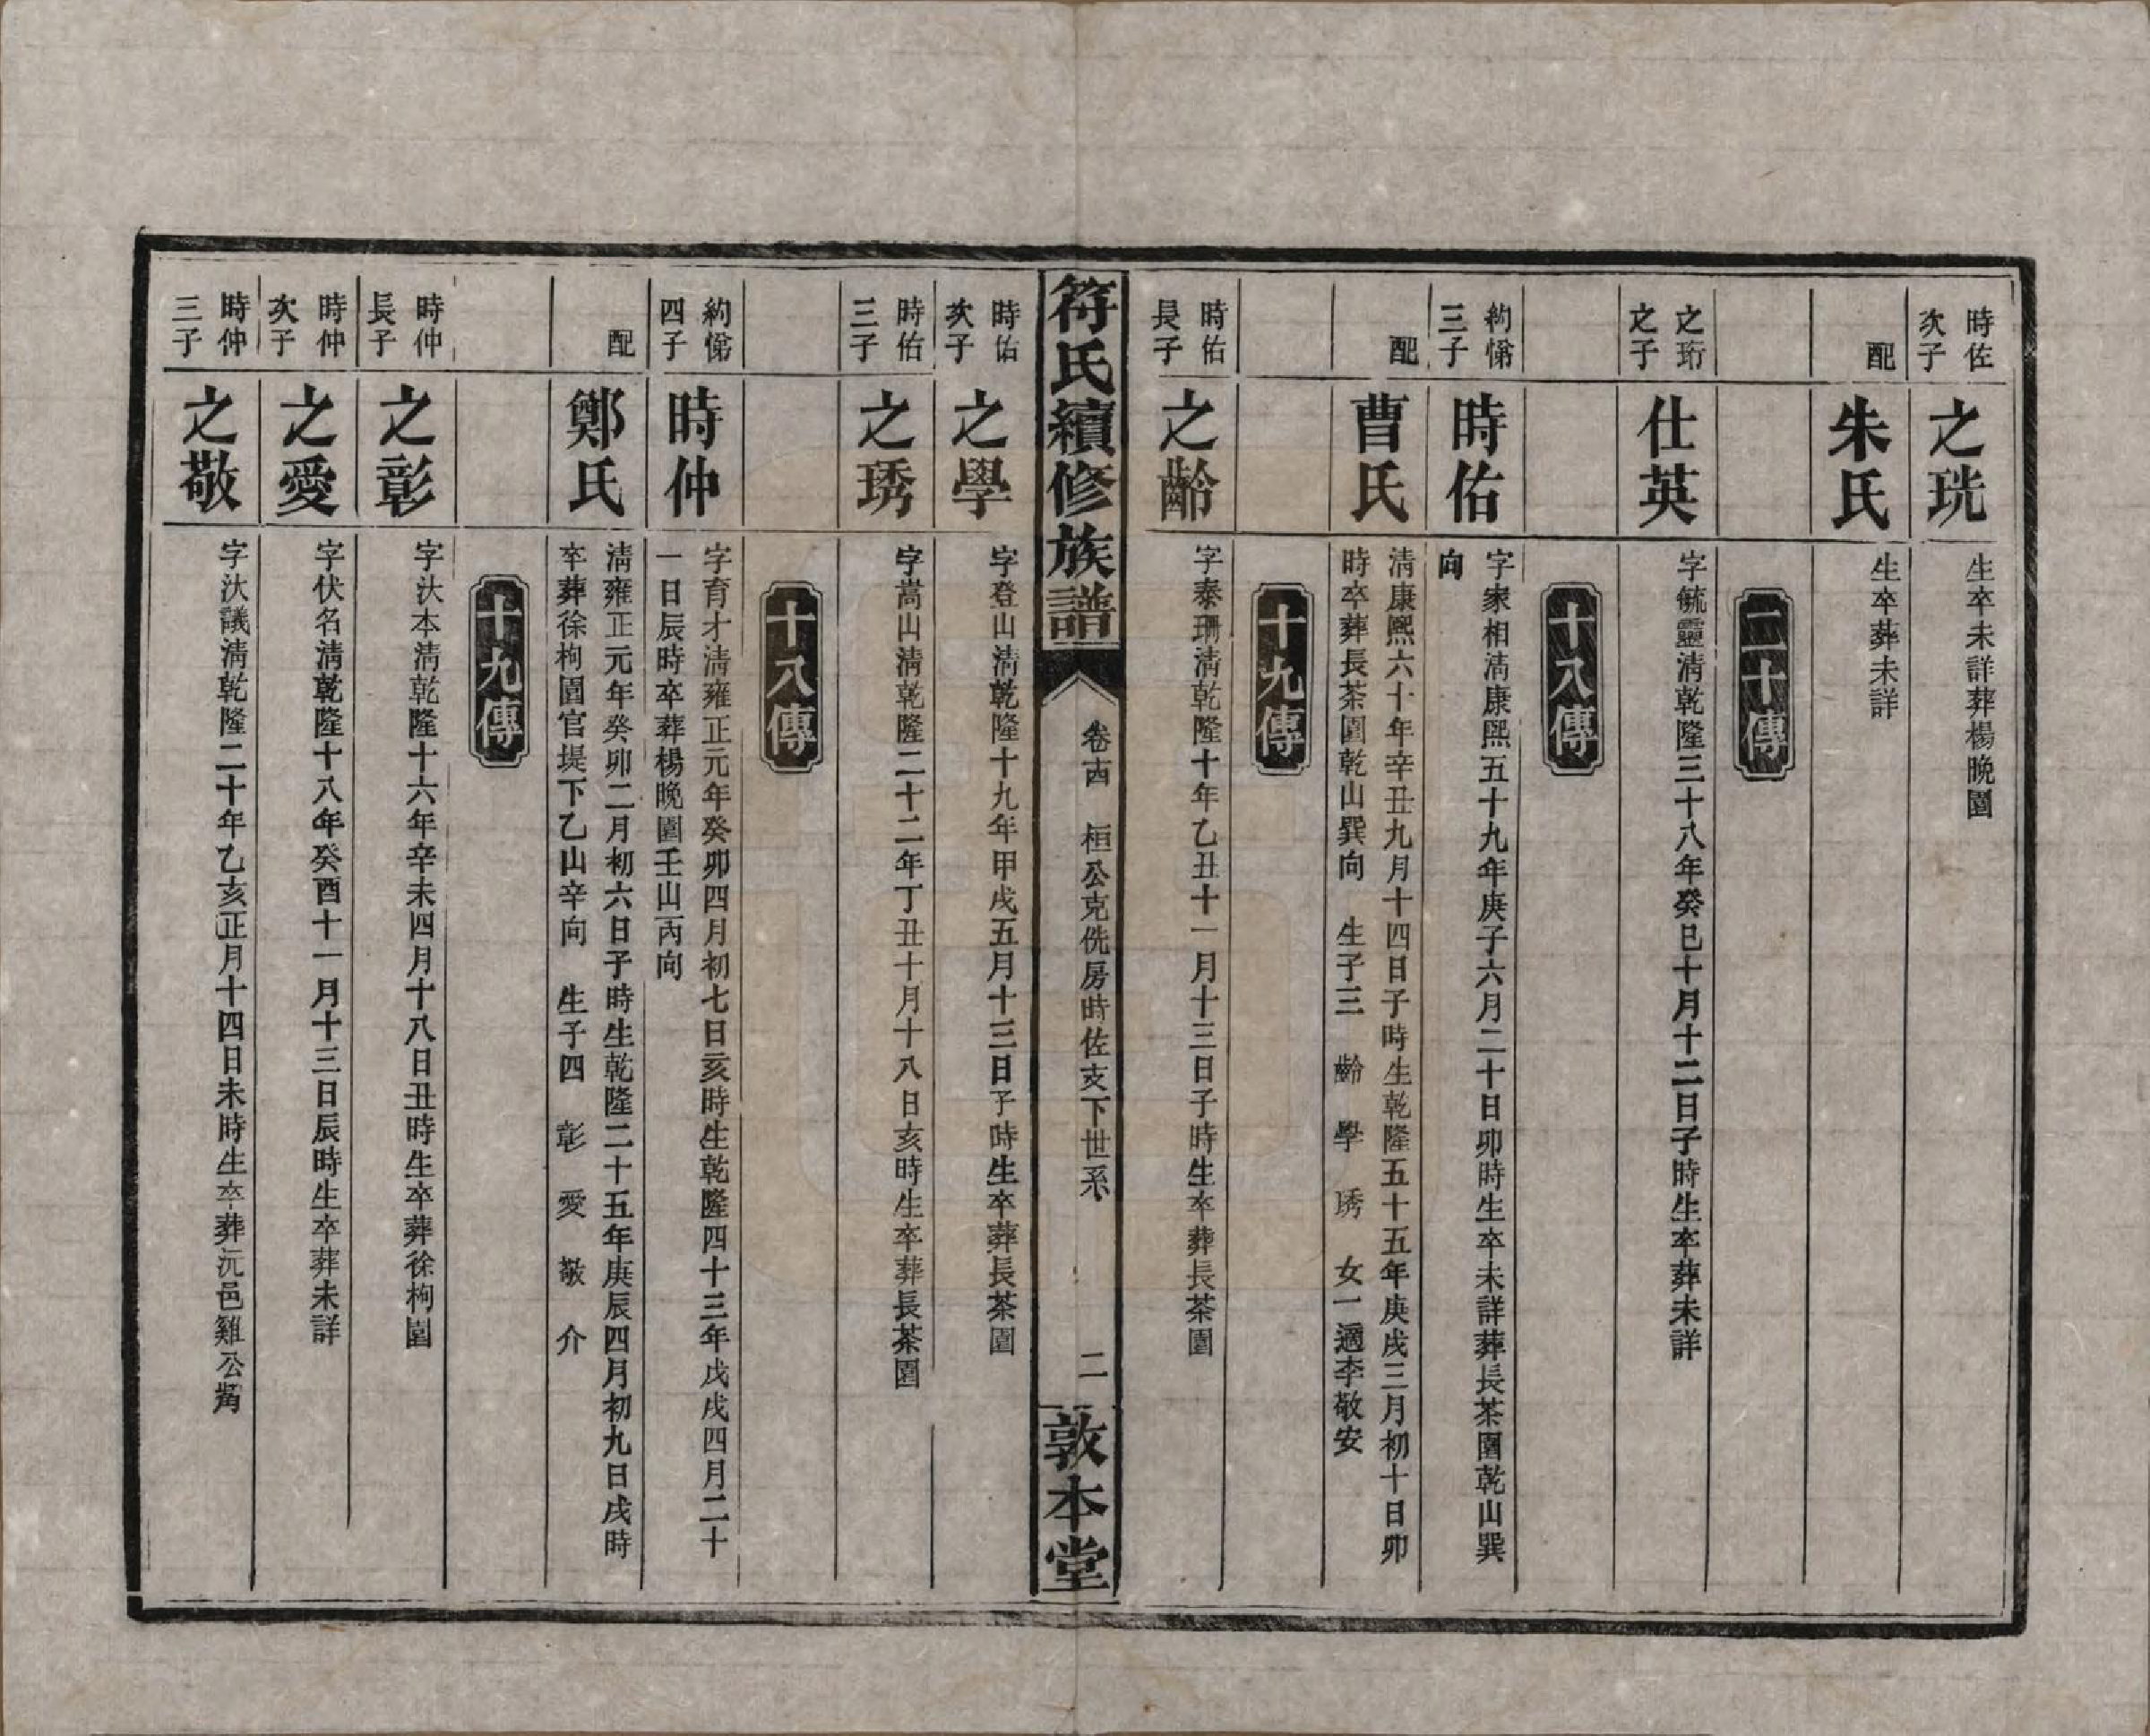 時佐
次子
之珖
生卒未詳葬楊晚園
配
朱氏
生卒葬未詳
二十傳
之珩
之子
仕英
字毓靈淸乾隆三十八年癸巳十月十二日子時生卒葬未詳
十八傳
約悌
三子
時佑
字家相淸康熙五十九年庚子六月二十日卯時生卒未詳葬長茶園乾山巽
向
配
曹氏
淸康熙六十年辛丑九月十四日子時生乾隆五十五年庚戌三月初十日卯
時卒葬長茶園乾山巽向 生子三 齡 學 琇 女一適李敬安
十九傳
時佑
長子
之齡
字泰珊淸乾隆十年乙丑十一月十三日子時生卒葬長茶園
符氏續修族譜
卷十四 桓公克侁房時佐支下世系
二
敦本堂
時佑
次子
之學
字登山淸乾隆十九年甲戌五月十三日子時生卒葬長茶園
時佑
三子
之琇
字嵩山淸乾隆二十二年丁丑十月十八日亥時生卒葬長茶園
十八傳
約悌
四子
時仲
字育才淸雍正元年癸卯四月初七日亥時生乾隆四十三年戊戌四月二十
一日辰時卒葬楊晚園壬山丙向
配
鄭氏
淸雍正元年癸卯二月初六日子時生乾隆二十五年庚辰四月初九日戌時
卒葬徐枸園官堤下乙山辛向 生子四 彰 愛 敬 介
十九傳
時仲
長子
之彰
字汏本淸乾隆十六年辛未四月十八日丑時生卒葬徐枸園
時仲
次子
之愛
字伏名淸乾隆十八年癸酉十一月十三日辰時生卒葬未詳
時仲
三子
之敬
字汏議淸乾隆二十年乙亥正月十四日未時生卒葬沅邑雞公嘴